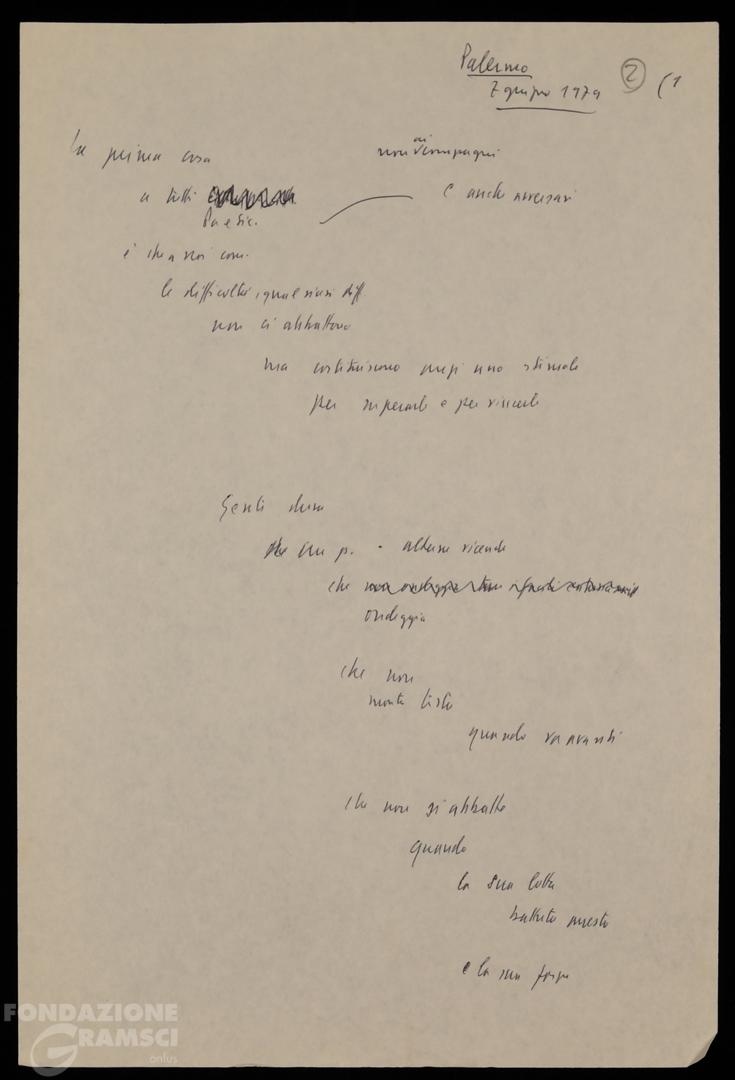 Palermo
7 giugno 1979
2
(1
La prima cosa
ai
non compagni
a tutti
Pa e Sic.
e anche avversari
è che a noi com.
le difficoltà, qualsiasi diff.
non ci abbattono
ma costituiscono anzi uno stimolo
per superarle e per vincerle
Gente dura
che
alterne vicende
che
ondeggia
che non
monta testa
quando va avanti
che non si abbatte
quando
la sua lotta
battuta arresto
e la sua forza
FONDAZIONE
GRAMSCI
onlus